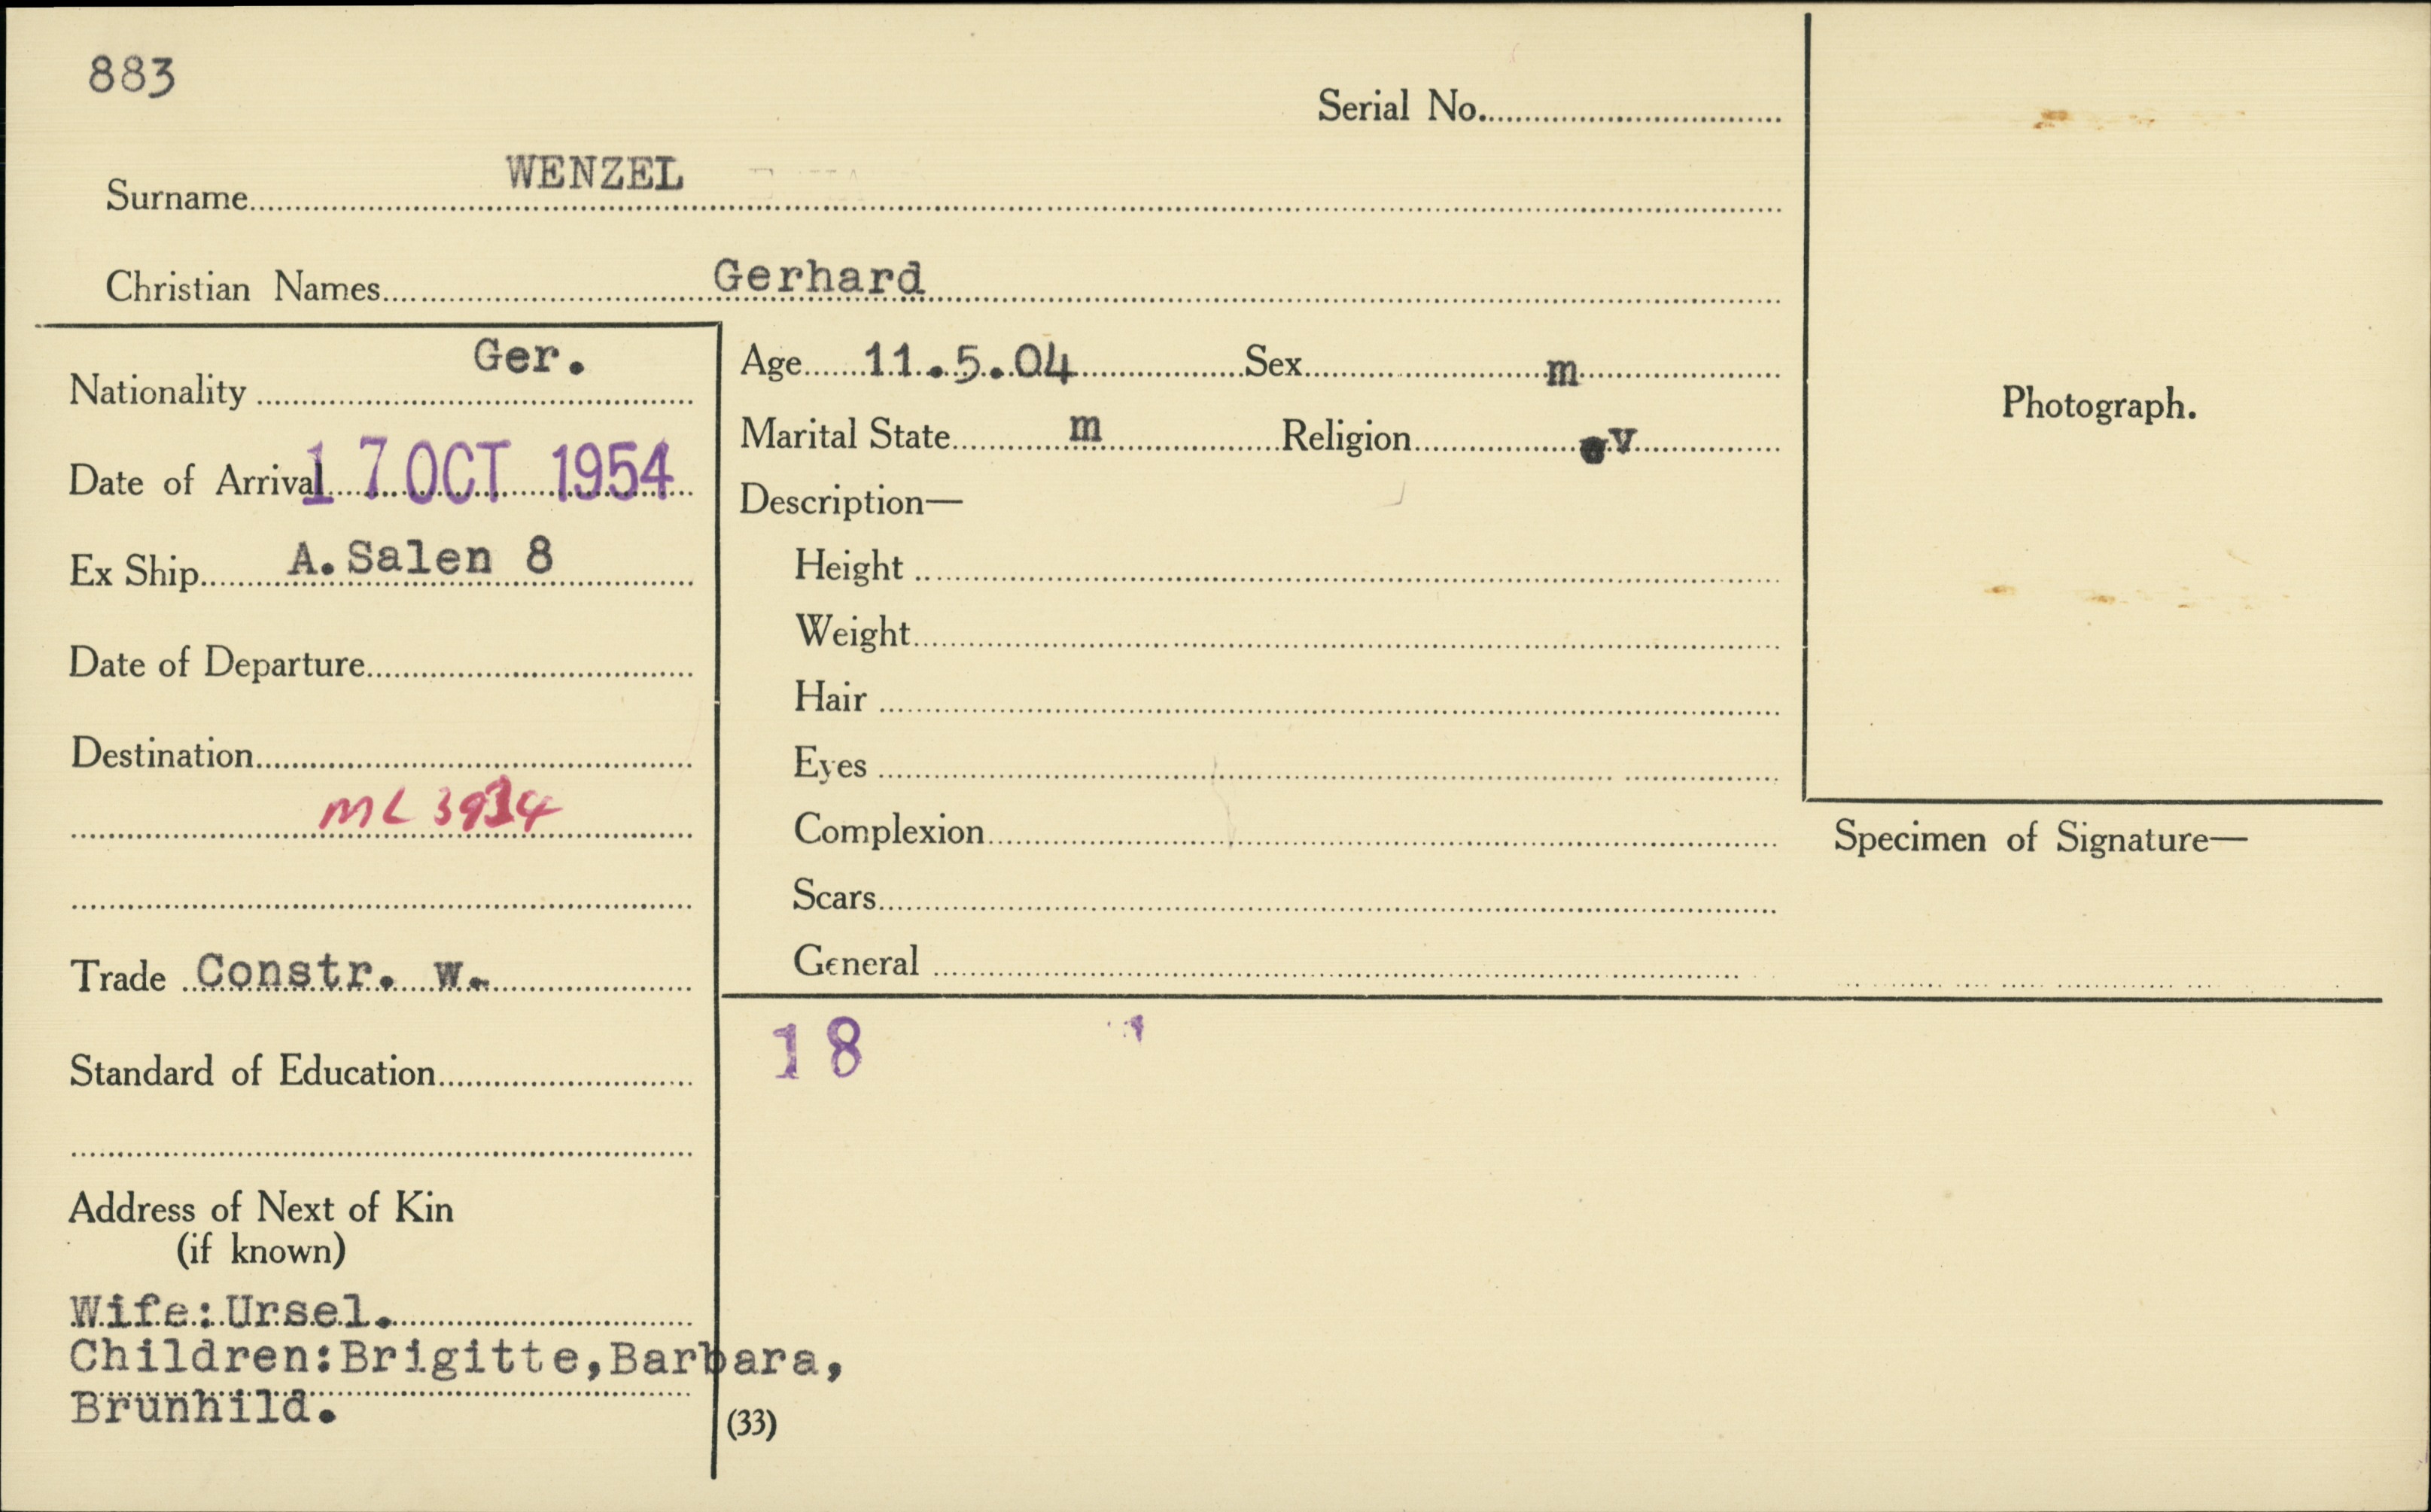 883
Serial No.
Surname WENZEL
Christian Names Gerhard
Nationality Ger.
Date of Arrival 17 OCT 1954
Ex Ship A.Salen 8
Date of Departure
Destination
ML 3934
Trade Constr. w.
Standard of Education
Address of Next of Kin
(if known)
Wife:Ursel.
Children:Brigitte,Barbara,
Brunhild.
Age 11.5.04 Sex m
Marital State m Religion ev
Description—
Height
Weight
Hair
Eyes
Complexion
Scars
General
18
(33)
Photograph.
Specimen of Signature—